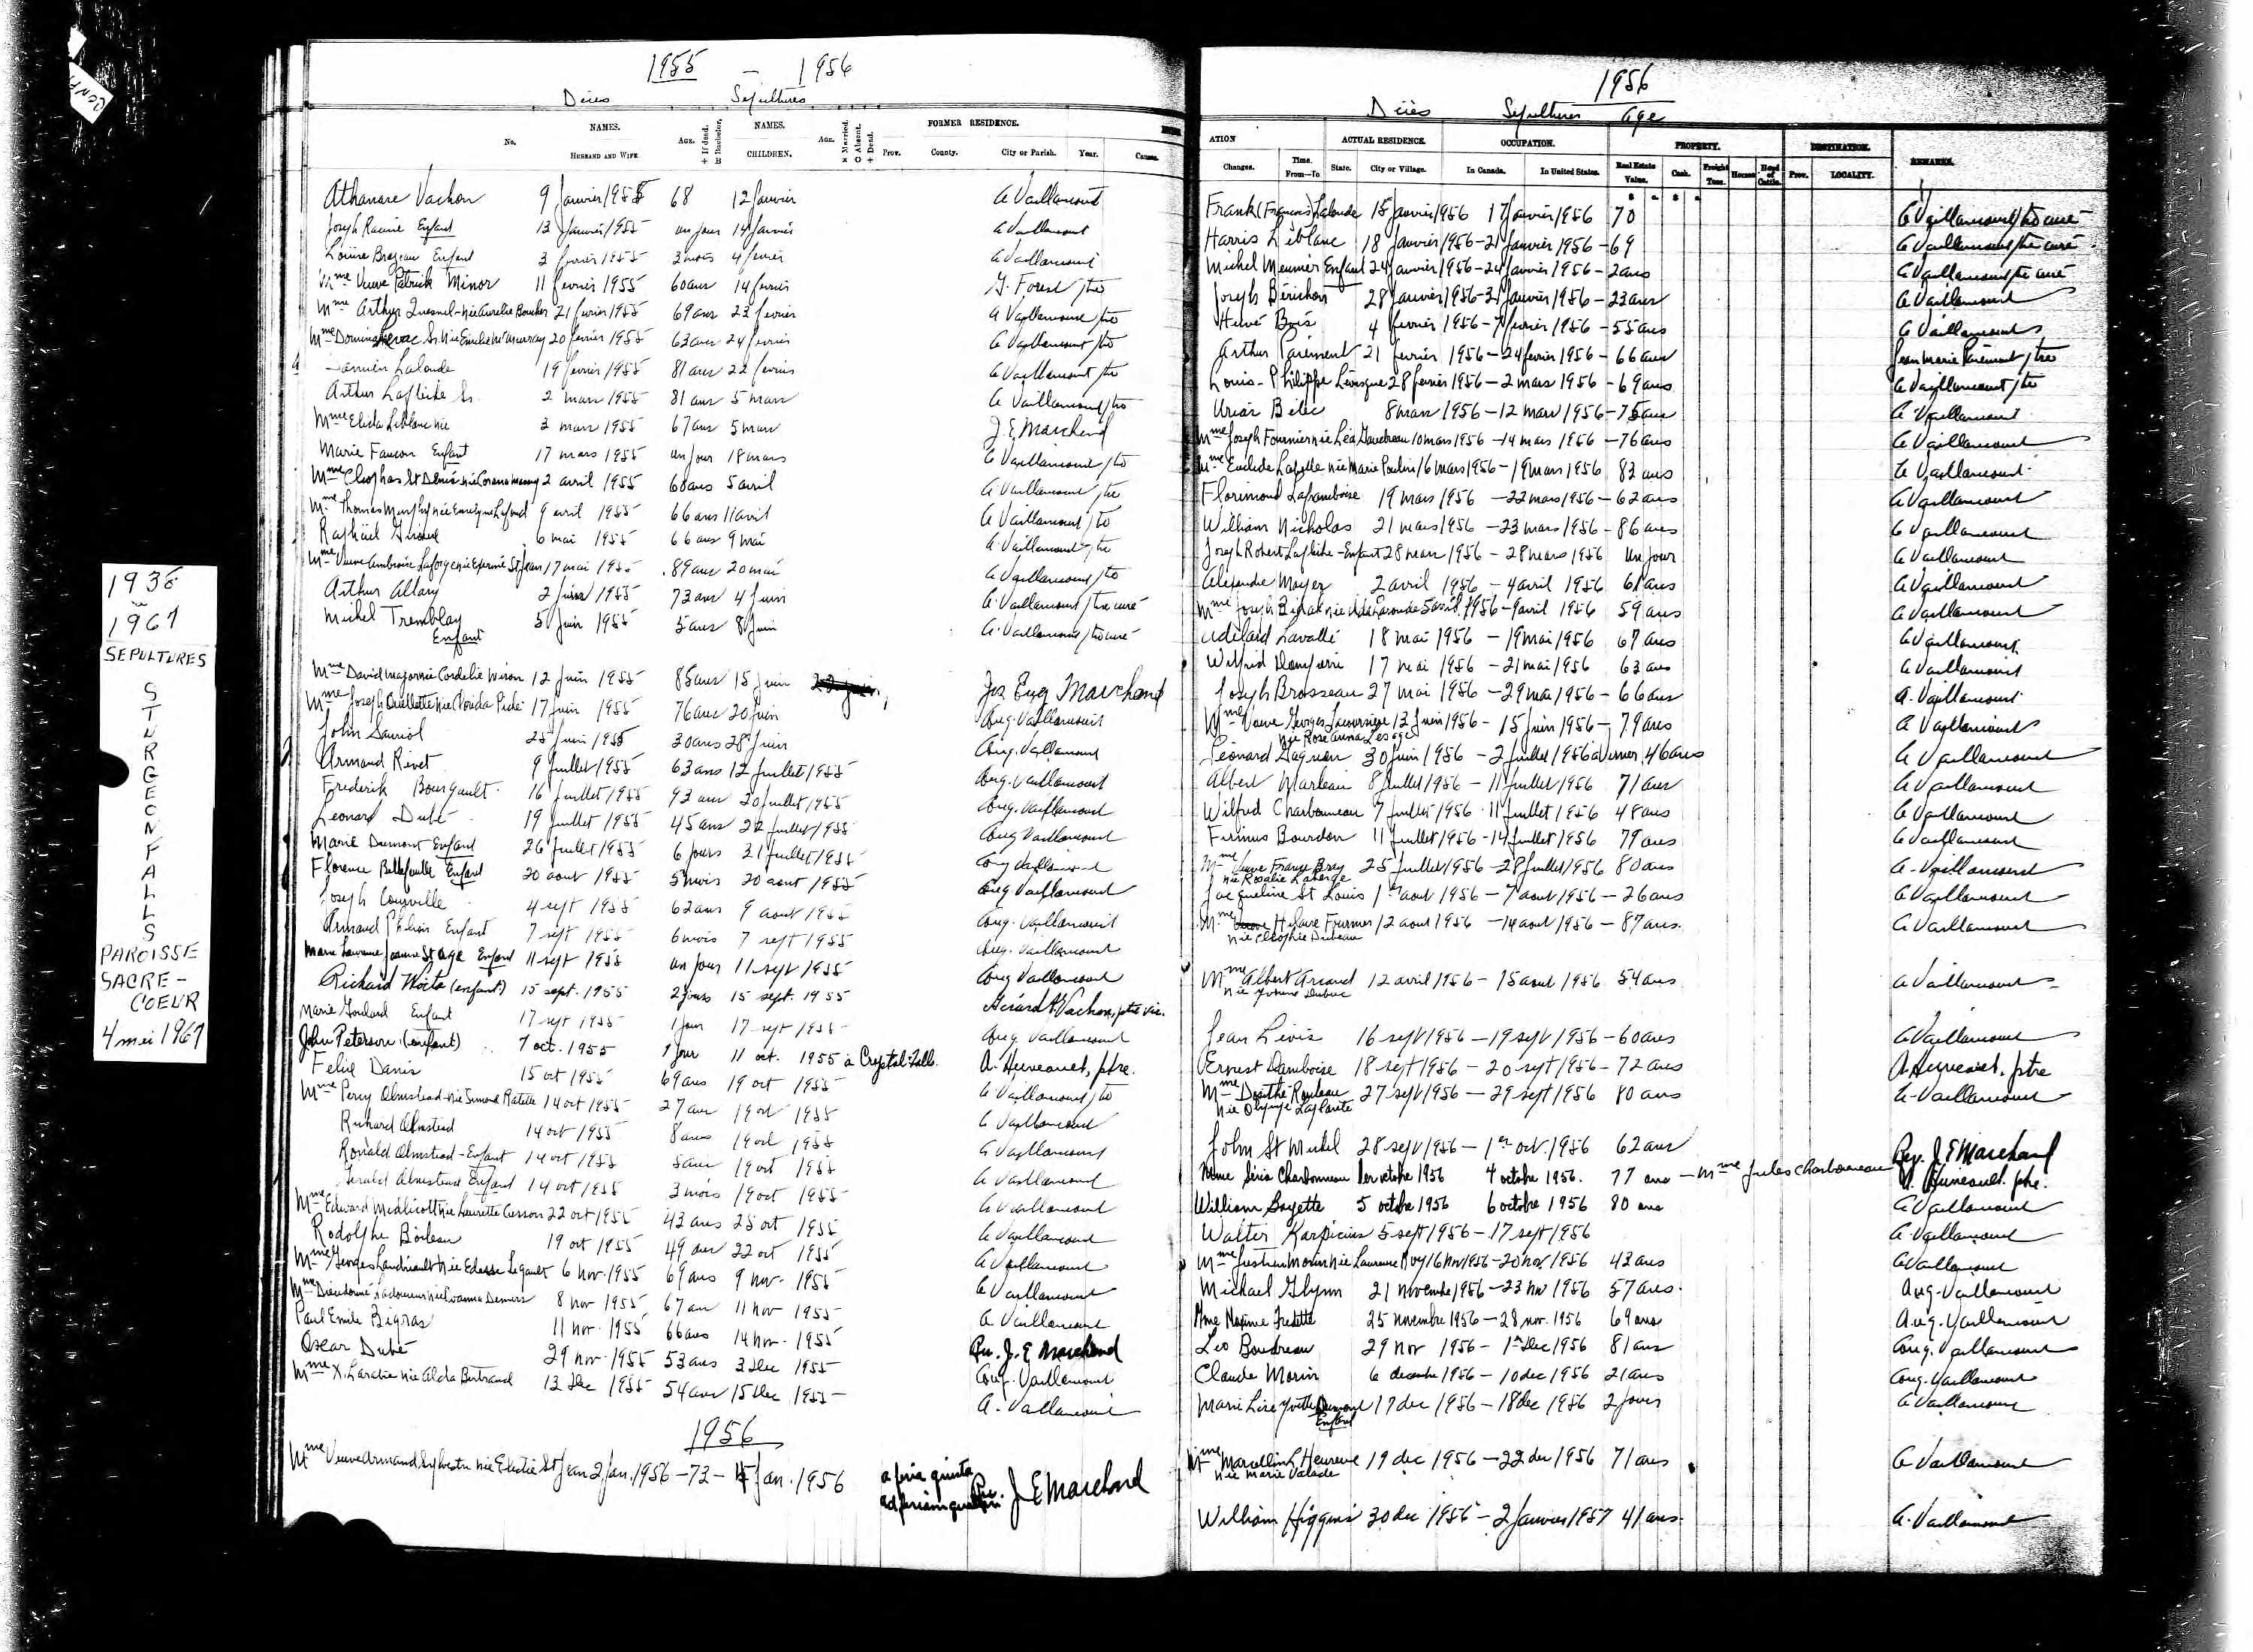 1936
1967
SEPULTURES
STURGEON FALLS
PAROISSE
SACRE-
COEUR
4 mai 1967
1955 – 1956
Décès Sépultures
No. NAMES. HUSBAND AND WIFE Age. + If dead. NAMES. CHILDREN. Age. × Married. O Absent. + Dead. FORMER RESIDENCE. Prov. County. City or Parish. Year. Causes.
Athanase Vachon 9 Janvier 1955 68 12 Janvier A Vaillancourt
Joseph Racine Enfant 13 Janvier 1955 un jour 14 Janvier A Vaillancourt
Louise Brazeau Enfant 3 février 1955 3 mois 4 février A Vaillancourt
Mme Veuve Patrick Minor 11 février 1955 60 ans 14 février G. Forest ptre
Mme Arthur Quesnel née Aurelie Boucher 21 février 1955 69 ans 23 février A Vaillancourt ptre
Mme Dominic Sr née Emilie McMurray 20 février 1955 63 ans 24 février A Vaillancourt ptre
Lalonde 19 février 1955 81 ans 22 février A Vaillancourt ptre
Arthur Laflèche Sr. 2 mars 1955 81 ans 5 mars A Vaillancourt ptre
Mme Elida Leblanc née 3 mars 1955 67 ans 5 mars J. E. Marchand
Marie Faucon Enfant 17 mars 1955 un jour 18 mars A Vaillancourt ptre
Mme Cleophas St Denis née 2 avril 1955 60 ans 5 avril A Vaillancourt ptre
Mme Thomas Murphy née Lafond 9 avril 1955 66 ans 11 avril A Vaillancourt ptre
Raphäel Giroux 6 mai 1955 66 ans 9 mai A. Vaillancourt ptre
Mme Veuve Ambroise Laforge née St Jean 17 mai 1955 89 ans 20 mai A Vaillancourt ptre
Arthur Allary 2 Juin 1955 73 ans 4 Juin A. Vaillancourt ptre curé
Michel Tremblay 5 Juin 1955 5 ans 8 Juin A. Vaillancourt ptre curé
Enfant
Mme David Major née Cordelie 12 Juin 1955 85 ans 15 Juin Jos Eug Marchand
Mme Joseph Ouellette née Piché 17 Juin 1955 76 ans 20 Juin Aug. Vaillancourt
John Sauriol 25 Juin 1955 30 ans 28 Juin Aug. Vaillancourt
Armand Rivet 9 Juillet 1955 63 ans 12 Juillet 1955 Aug. Vaillancourt
Frederik Bourgault 16 Juillet 1955 93 ans 20 Juillet 1955 Aug. Vaillancourt
Leonard Dubé 19 Juillet 1955 45 ans 22 Juillet 1955 Aug Vaillancourt
Marie Dumont Enfant 26 Juillet 1955 6 jours 31 Juillet 1955 Aug Vaillancourt
Florence Bellefeuille Enfant 20 aout 1955 5 mois 20 aout 1955 Aug Vaillancourt
Joseph Courville 4 sept 1955 62 ans 9 aout 1955 Aug. Vaillancourt
Armand Enfant 7 sept 1955 6 mois 7 sept 1955 Aug. Vaillancourt
Marie Laurence Jeanne Enfant 11 sept 1955 un jour 11 sept 1955 Aug Vaillancourt
Richard (enfant) 15 sept. 1955 2 jours 15 sept. 1955 Gérard Vachon, ptre vic.
Marie Goulard Enfant 17 sept 1955 1 jour 17 sept 1955 Aug. Vaillancourt
John Peterson (enfant) 7 oct. 1955 1 jour 11 oct. 1955 à Crystal Falls. A. Huneault, ptre.
Felix Danis 15 oct 1955 69 ans 19 oct 1955 A Vaillancourt ptre
Mme Percy Olmstead née Simone Ratelle 14 oct 1955 27 ans 19 oct 1955 A Vaillancourt
Richard Olmstead 14 oct 1955 8 ans 19 oct 1955 A Vaillancourt
Ronald Olmstead - Enfant 14 oct 1955 5 ans 19 oct 1955 A Vaillancourt
Gerald Olmstead Enfant 14 oct 1955 3 mois 19 oct 1955 A Vaillancourt
Mme Edward Medlicott née Laurette 22 oct 1955 43 ans 25 oct 1955 A Vaillancourt
Rodolphe Boileau 19 oct 1955 49 ans 22 oct 1955 A Vaillancourt
Mme Georges Landriault née Legault 6 nov. 1955 69 ans 9 nov. 1955 A Vaillancourt
Mme Dieudonné Ladouceur née Demers 8 nov 1955 67 ans 11 nov 1955 A Vaillancourt
Paul Emile Bigras 11 nov. 1955 66 ans 14 nov. 1955 Rev. J. E Marchand
Oscar Dubé 29 nov. 1955 53 ans 3 Dec 1955 Aug. Vaillancourt
Mme X. Larabie née Alda Bertrand 13 Dec 1955 54 ans 15 Dec 1955 A. Vaillancourt
1956
Mme Veuve Armand Sylvestre née St Jean 2 Jan. 1956 – 72 – Jan. 1956 J E Marchand
1956
Décès Sépultures Age
ATION Changes. Time. From—To ACTUAL RESIDENCE. State. City or Village. OCCUPATION. In Canada. In United States. PROPERTY. Real Estate Value. Cash. Freight Tons. Horses Head of Cattle. DESTINATION. Prov. LOCALITY. REMARKS.
Frank (Francois) Lalonde 15 Janvier 1956 17 Janvier 1956 70 A Vaillancourt ptre curé
Harris Leblanc 18 Janvier 1956 – 21 Janvier 1956 – 69 A Vaillancourt ptre curé
Michel Meunier Enfant 24 Janvier 1956 – 24 Janvier 1956 – 2 ans A Vaillancourt ptre curé
Joseph Bérichon 28 Janvier 1956 – 31 Janvier 1956 – 23 ans A Vaillancourt
Hervé Bois 4 février 1956 – 7 février 1956 – 55 ans A Vaillancourt
Arthur Parement 21 février 1956 – 24 février 1956 – 66 ans Jean Marie Parement ptre
Louis-Philippe Lévesque 28 février 1956 – 2 mars 1956 – 69 ans A Vaillancourt ptre
Urias Bélec 8 mars 1956 – 12 mars 1956 – 75 ans A Vaillancourt
Mme Joseph Fournier née Léa Gaudreau 10 mars 1956 – 14 mars 1956 – 76 ans A Vaillancourt
Mme Euclide née Marie Poulin 16 mars 1956 – 19 mars 1956 83 ans A Vaillancourt
Florimond Laframboise 19 mars 1956 – 22 mars 1956 – 62 ans A Vaillancourt
William Nicholas 21 mars 1956 – 23 mars 1956 – 86 ans A Vaillancourt
Joseph Robert Laflèche – Enfant 28 mars 1956 – 28 mars 1956 un jour A Vaillancourt
Alexandre Mayer 2 avril 1956 – 4 avril 1956 61 ans A Vaillancourt
Mme Joseph née 5 avril 1956 – 9 avril 1956 59 ans A Vaillancourt
Adélard Lavallé 18 mai 1956 – 19 mai 1956 67 ans A Vaillancourt
Wilfrid Dompierre 17 mai 1956 – 21 mai 1956 63 ans A Vaillancourt
Joseph Brosseau 27 mai 1956 – 29 mai 1956 – 66 ans A. Vaillancourt
Mme Veuve Georges 12 Juin 1956 – 15 Juin 1956 – 79 ans A Vaillancourt
née Rose Anna Lesage
Léonard Gagnon 30 Juin 1956 – 2 Juillet 1956 à Verner, 46 ans A Vaillancourt
Albert Marleau 8 Juillet 1956 – 11 Juillet 1956 71 ans A Vaillancourt
Wilfred Charbonneau 7 Juillet 1956 – 11 Juillet 1956 48 ans A Vaillancourt
Firmus Bourdon 11 Juillet 1956 – 14 Juillet 1956 79 ans A Vaillancourt
Mme Veuve Frank Bray 25 Juillet 1956 – 28 Juillet 1956 80 ans A. Vaillancourt
née Rosalie Laberge
Jacqueline St Louis 1er aout 1956 – 7 aout 1956 – 26 ans A Vaillancourt
Mme Veuve Hilaire Fournier 12 aout 1956 – 14 aout 1956 – 87 ans. A Vaillancourt
née Cléophée Dubeau
Mme Albert Arcand 12 avril 1956 – 15 aout 1956 54 ans A Vaillancourt
née Yvonne Dubuc
Jean Livis 16 sept 1956 – 19 sept 1956 – 60 ans A Vaillancourt
Ernest Damboise 18 sept 1956 – 20 sept 1956 – 72 ans A Huneault, ptre
Mme Dosithé Rouleau 27 sept 1956 – 29 sept 1956 80 ans A. Vaillancourt
née Olympe Laplante
John St Michel 28 sept 1956 – 1er oct. 1956 62 ans Rev. J E Marchand
Mme Séria Charbonneau 1er octobre 1956 4 octobre 1956. 77 ans – Mme Jules Charbonneau A. Huneault. ptre.
William Goyette 5 octobre 1956 6 octobre 1956 80 ans A Vaillancourt
Walter Karpicius 5 sept 1956 – 17 sept 1956 A. Vaillancourt
Mme Justin Morin née Laurence Roy 16 Nov 1956 – 20 Nov 1956 42 ans A Vaillancourt
Michael Glynn 21 novembre 1956 – 23 nov 1956 57 ans. Aug. Vaillancourt
Mme Noxime Fredette 25 novembre 1956 – 28 nov. 1956 69 ans Aug. Vaillancourt
Leo Boudreau 29 nov 1956 – 1er Dec 1956 81 ans Aug. Vaillancourt
Claude Morin 6 decembre 1956 – 10 dec 1956 21 ans Aug. Vaillancourt
Marie Lise Yvette Dumont 17 dec 1956 – 18 dec 1956 2 jours A Vaillancourt
Enfant
Mme Marcellin L'Heureux 19 dec 1956 – 22 dec 1956 71 ans A Vaillancourt
née Marie Valade
William Higgins 30 dec 1956 – 2 Janvier 1957 41 ans. A. Vaillancourt